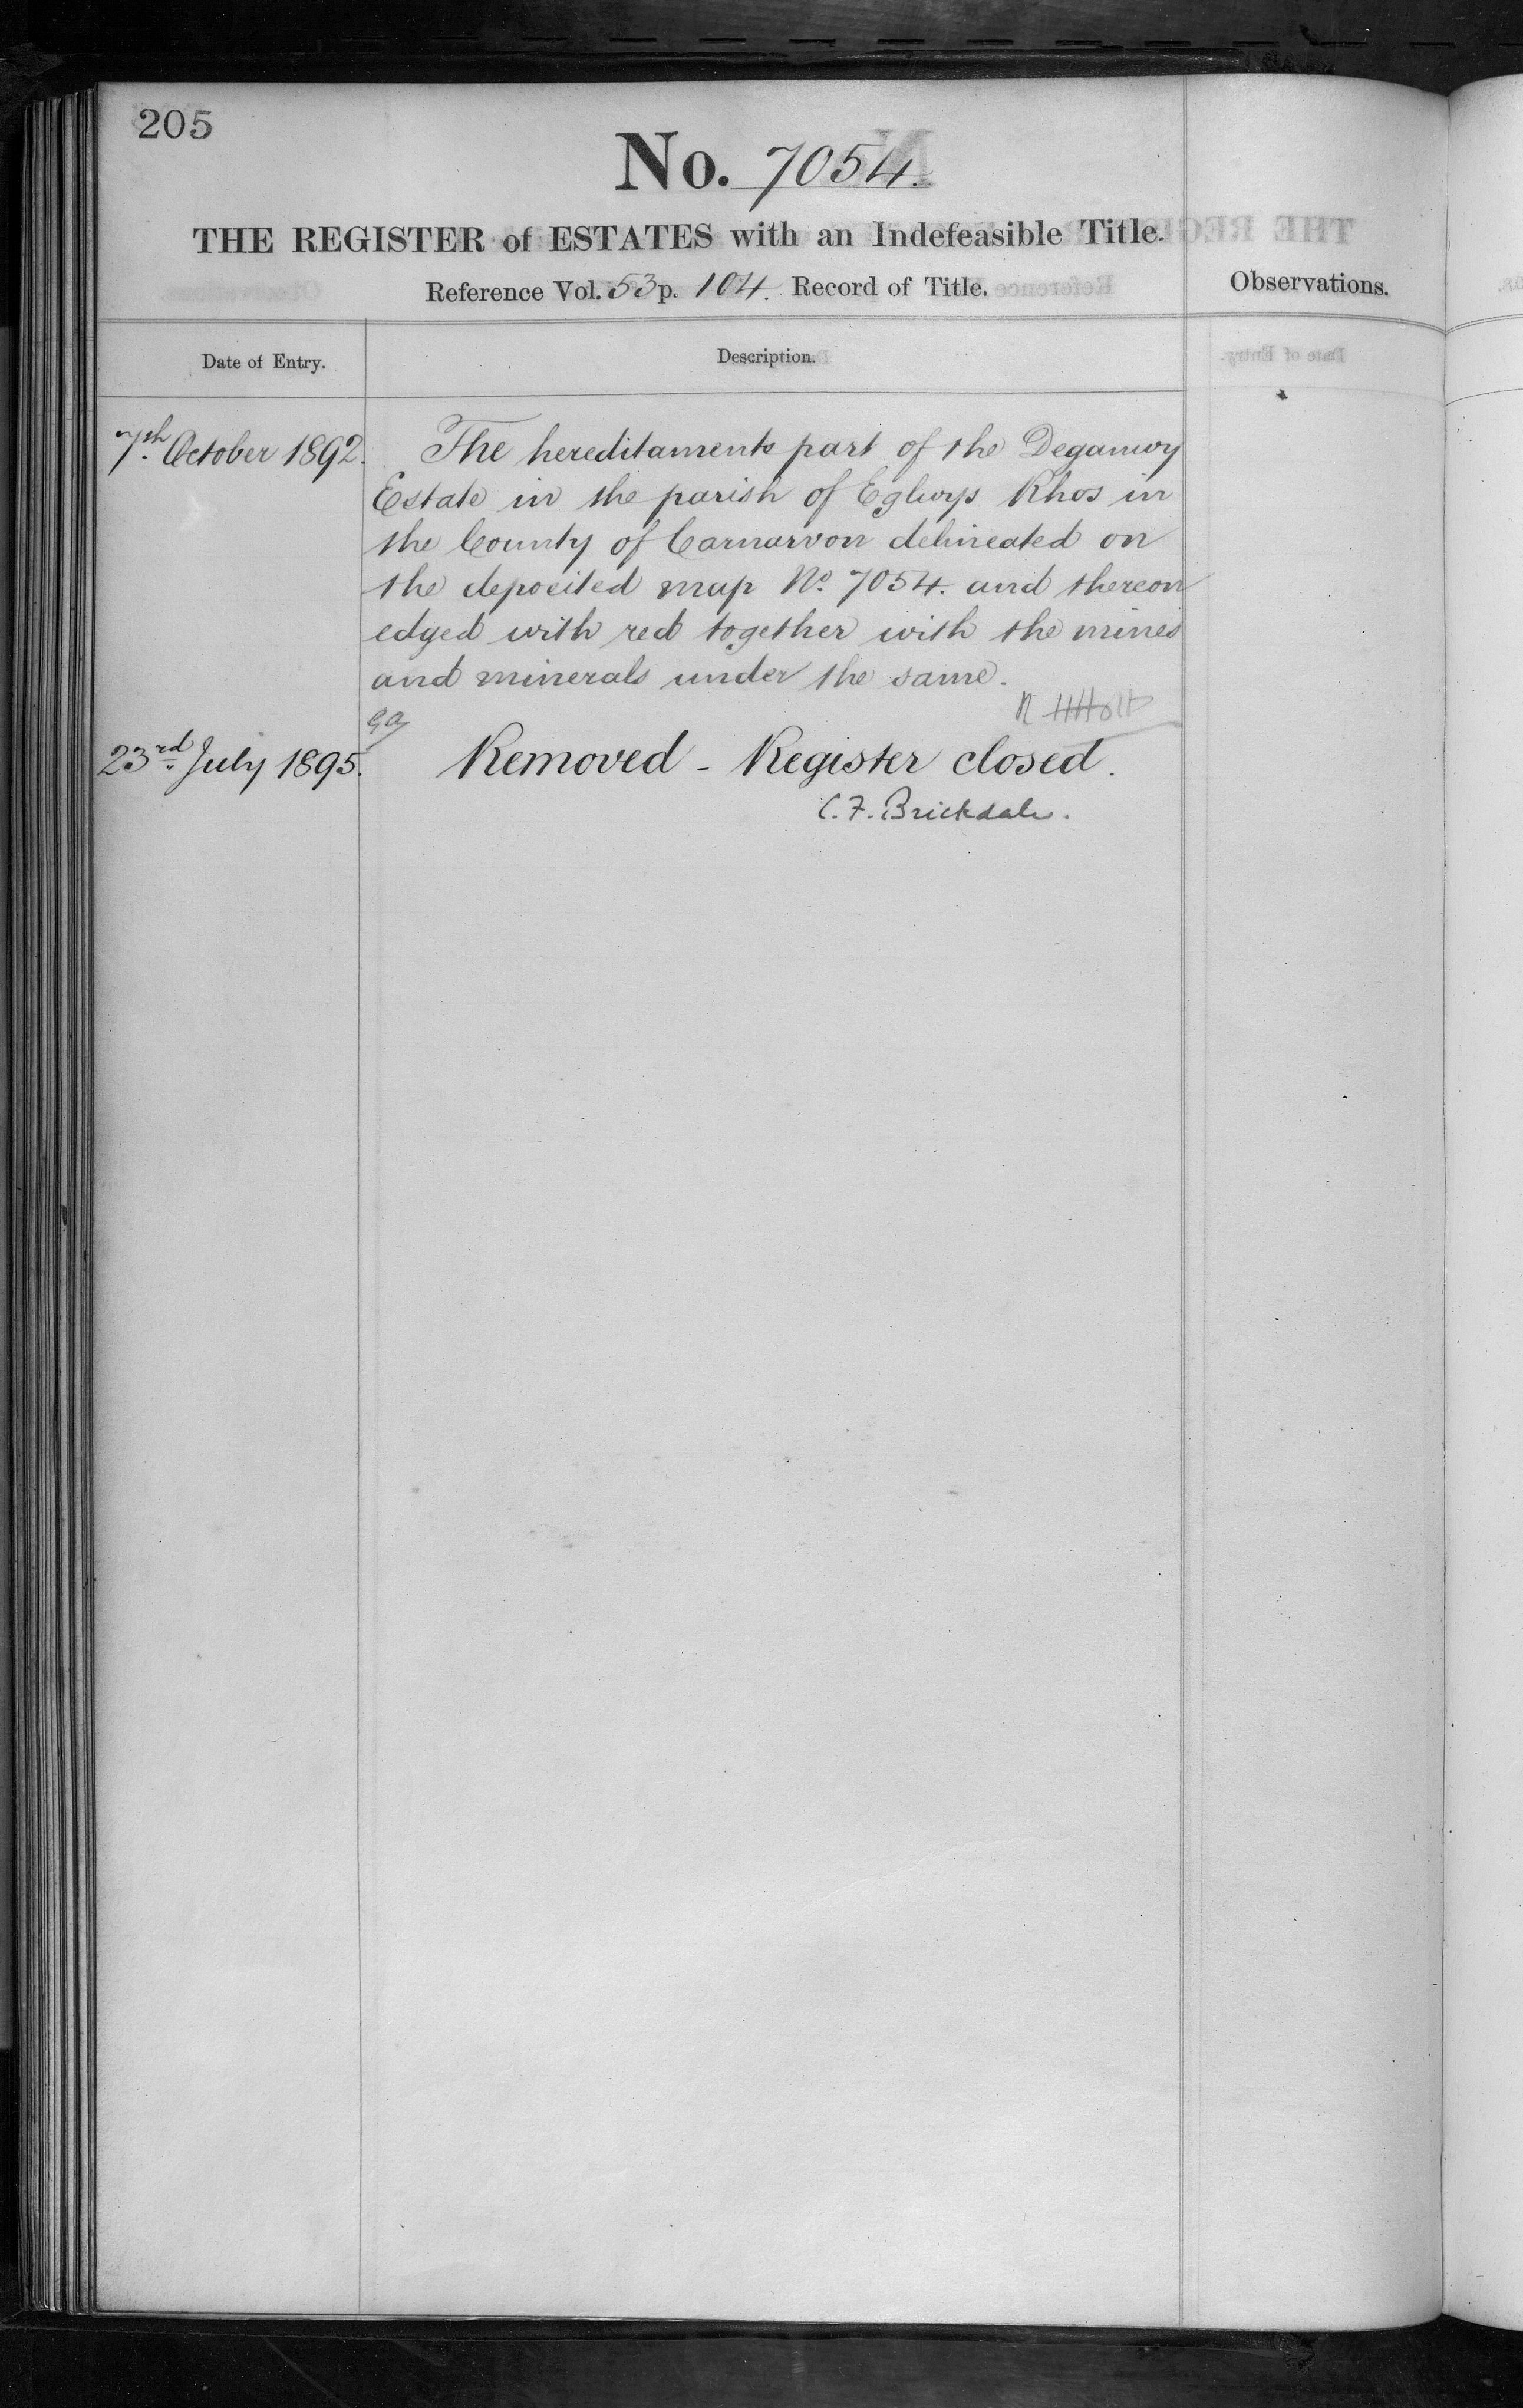 205
No. 7054.
THE REGISTER of ESTATES with an Indefeasible Title.
Reference Vol. 53 p. 104. Record of Title.
Observations.
Date of Entry.
Description.
7th October 1892.
The hereditaments part of the Deganwy
Estate in the parish of Eglwys Rhos in
the County of Carnarvon delineated on
the deposited map No. 7054. and thereon
edged with red together with the mines
and minerals under the same.
R H Holt
23rd July 1895.
Removed - Register closed.
C. F. Brickdale.